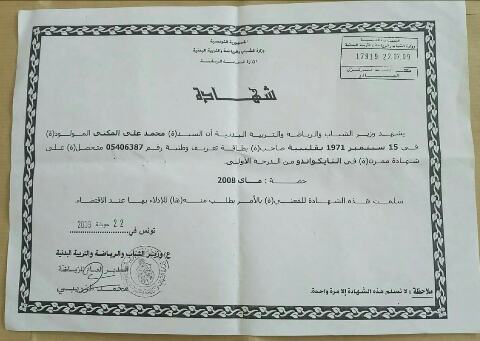 الجمهورية التونسية
وزارة الشباب والرياضة والتربية البدنية
17919 22.07.09
شهادة
يشهد وزير الشباب والرياضة والتربية البدنية أن السيد(ة) محمد علي المكني المولود(ة)
في 15 سبتمبر 1971 بقليبية صاحب(ة) بطاقة تعريف وطنية رقم 05406387 متحصل(ة) على
شهادة ممرن(ة) في التايكواندو من الدرجة الأولى.
حصة : ماي 2008
سلمت هذه الشهادة للمعني(ة) بالأمر بطلب منه(ها) للإدلاء بها عند الاقتضاء
تونس في 22
ع/وزير الشباب والرياضة والتربية البدنية
المدير العام للرياضة
محمد
ملاحظة : لا تسلم هذه الشهادة إلا مرة واحدة.